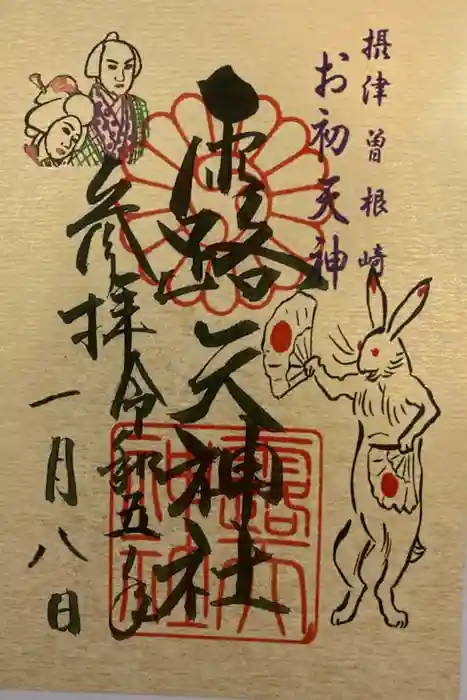 摂津曽根崎
お初天神
露天神社
参拝
令和五年
一月八日
露天
神社